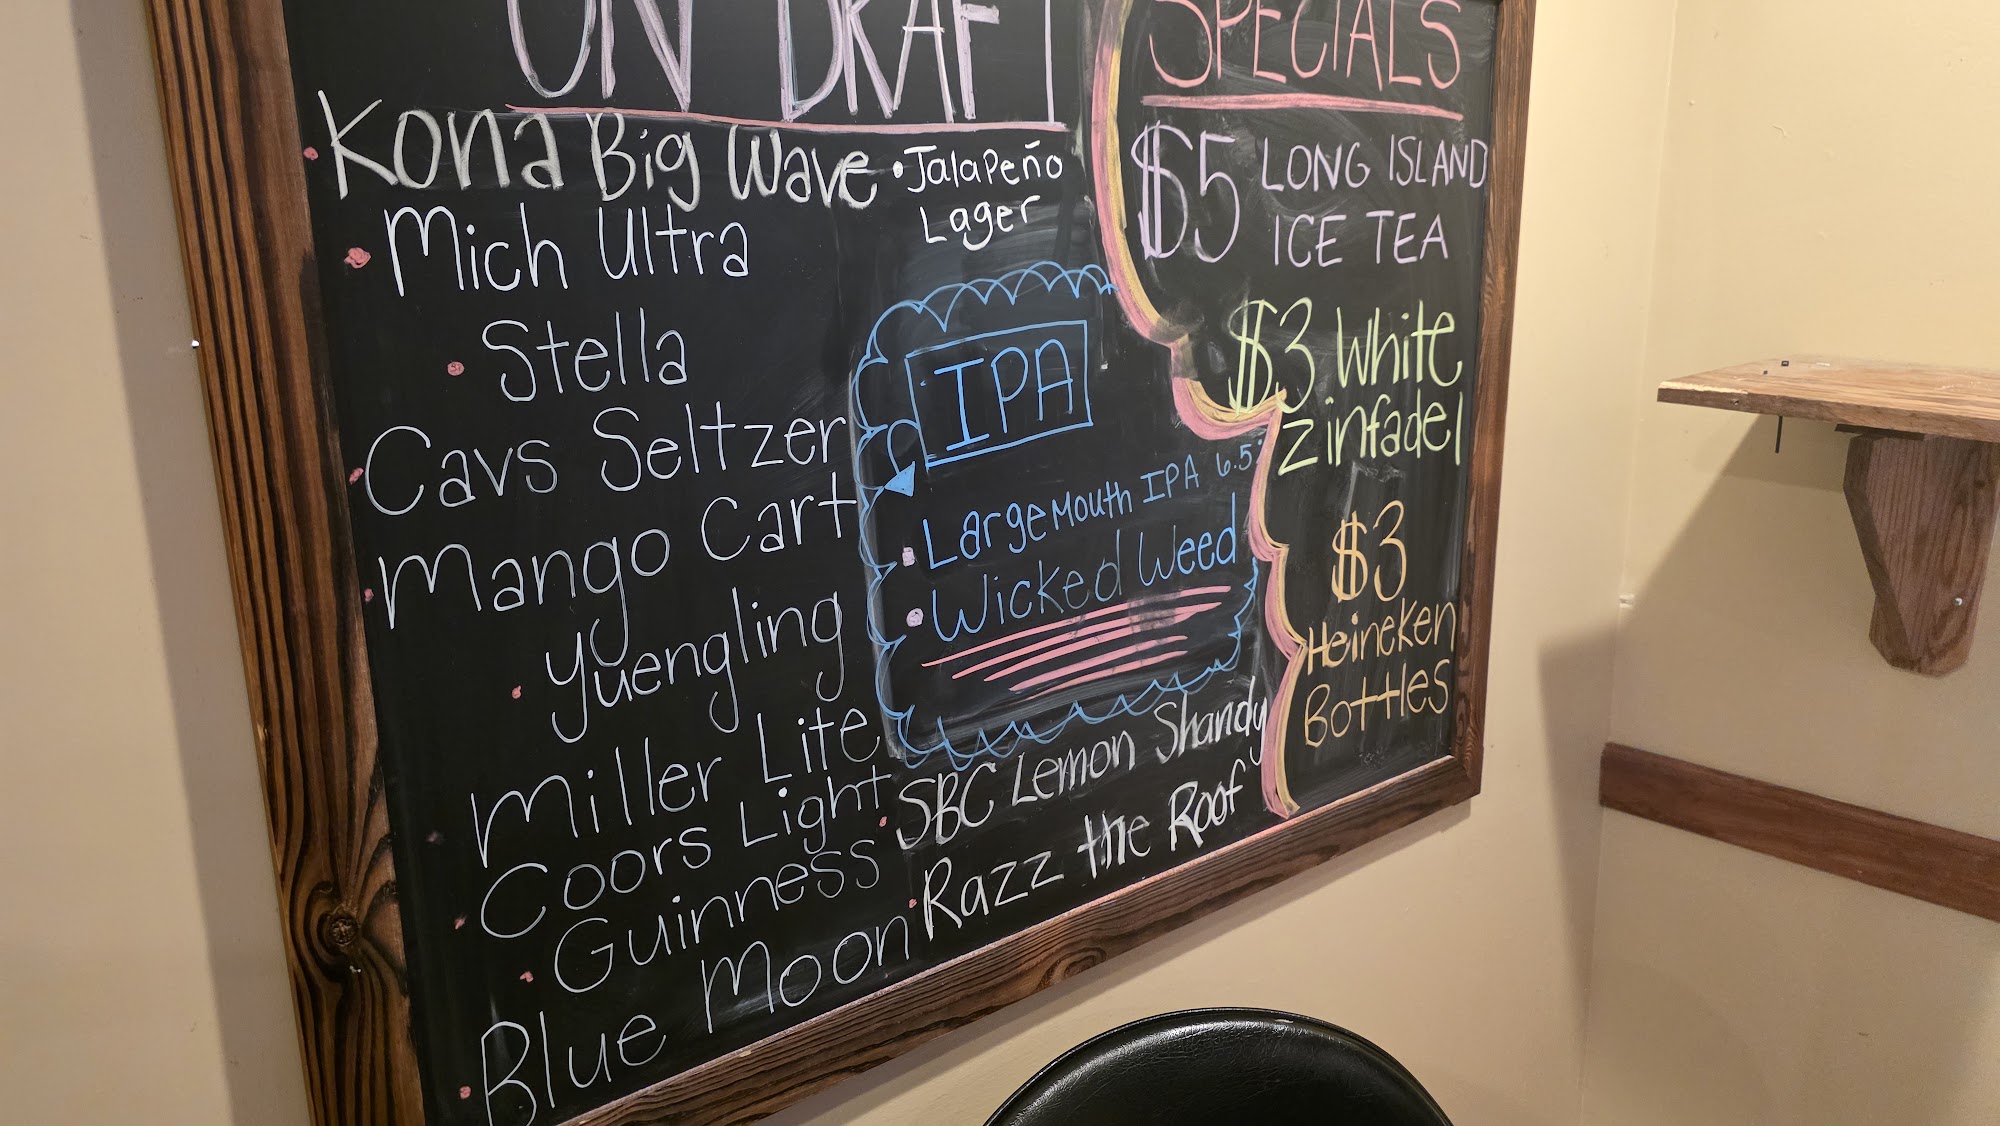 ON DRAFT
• Kona Big Wave
• Mich Ultra
• Stella
• Cavs Seltzer
• Mango Cart
• Yuengling
• Miller Lite
• Coors Light
• Guinness
• Blue Moon
• Jalapeño
Lager
IPA
• Largemouth IPA 6.5
• Wicked Weed
• SBC Lemon Shandy
• Razz the Roof
SPECIALS
$5 LONG ISLAND
ICE TEA
$3 White
Zinfadel
$3
Heineken
Bottles